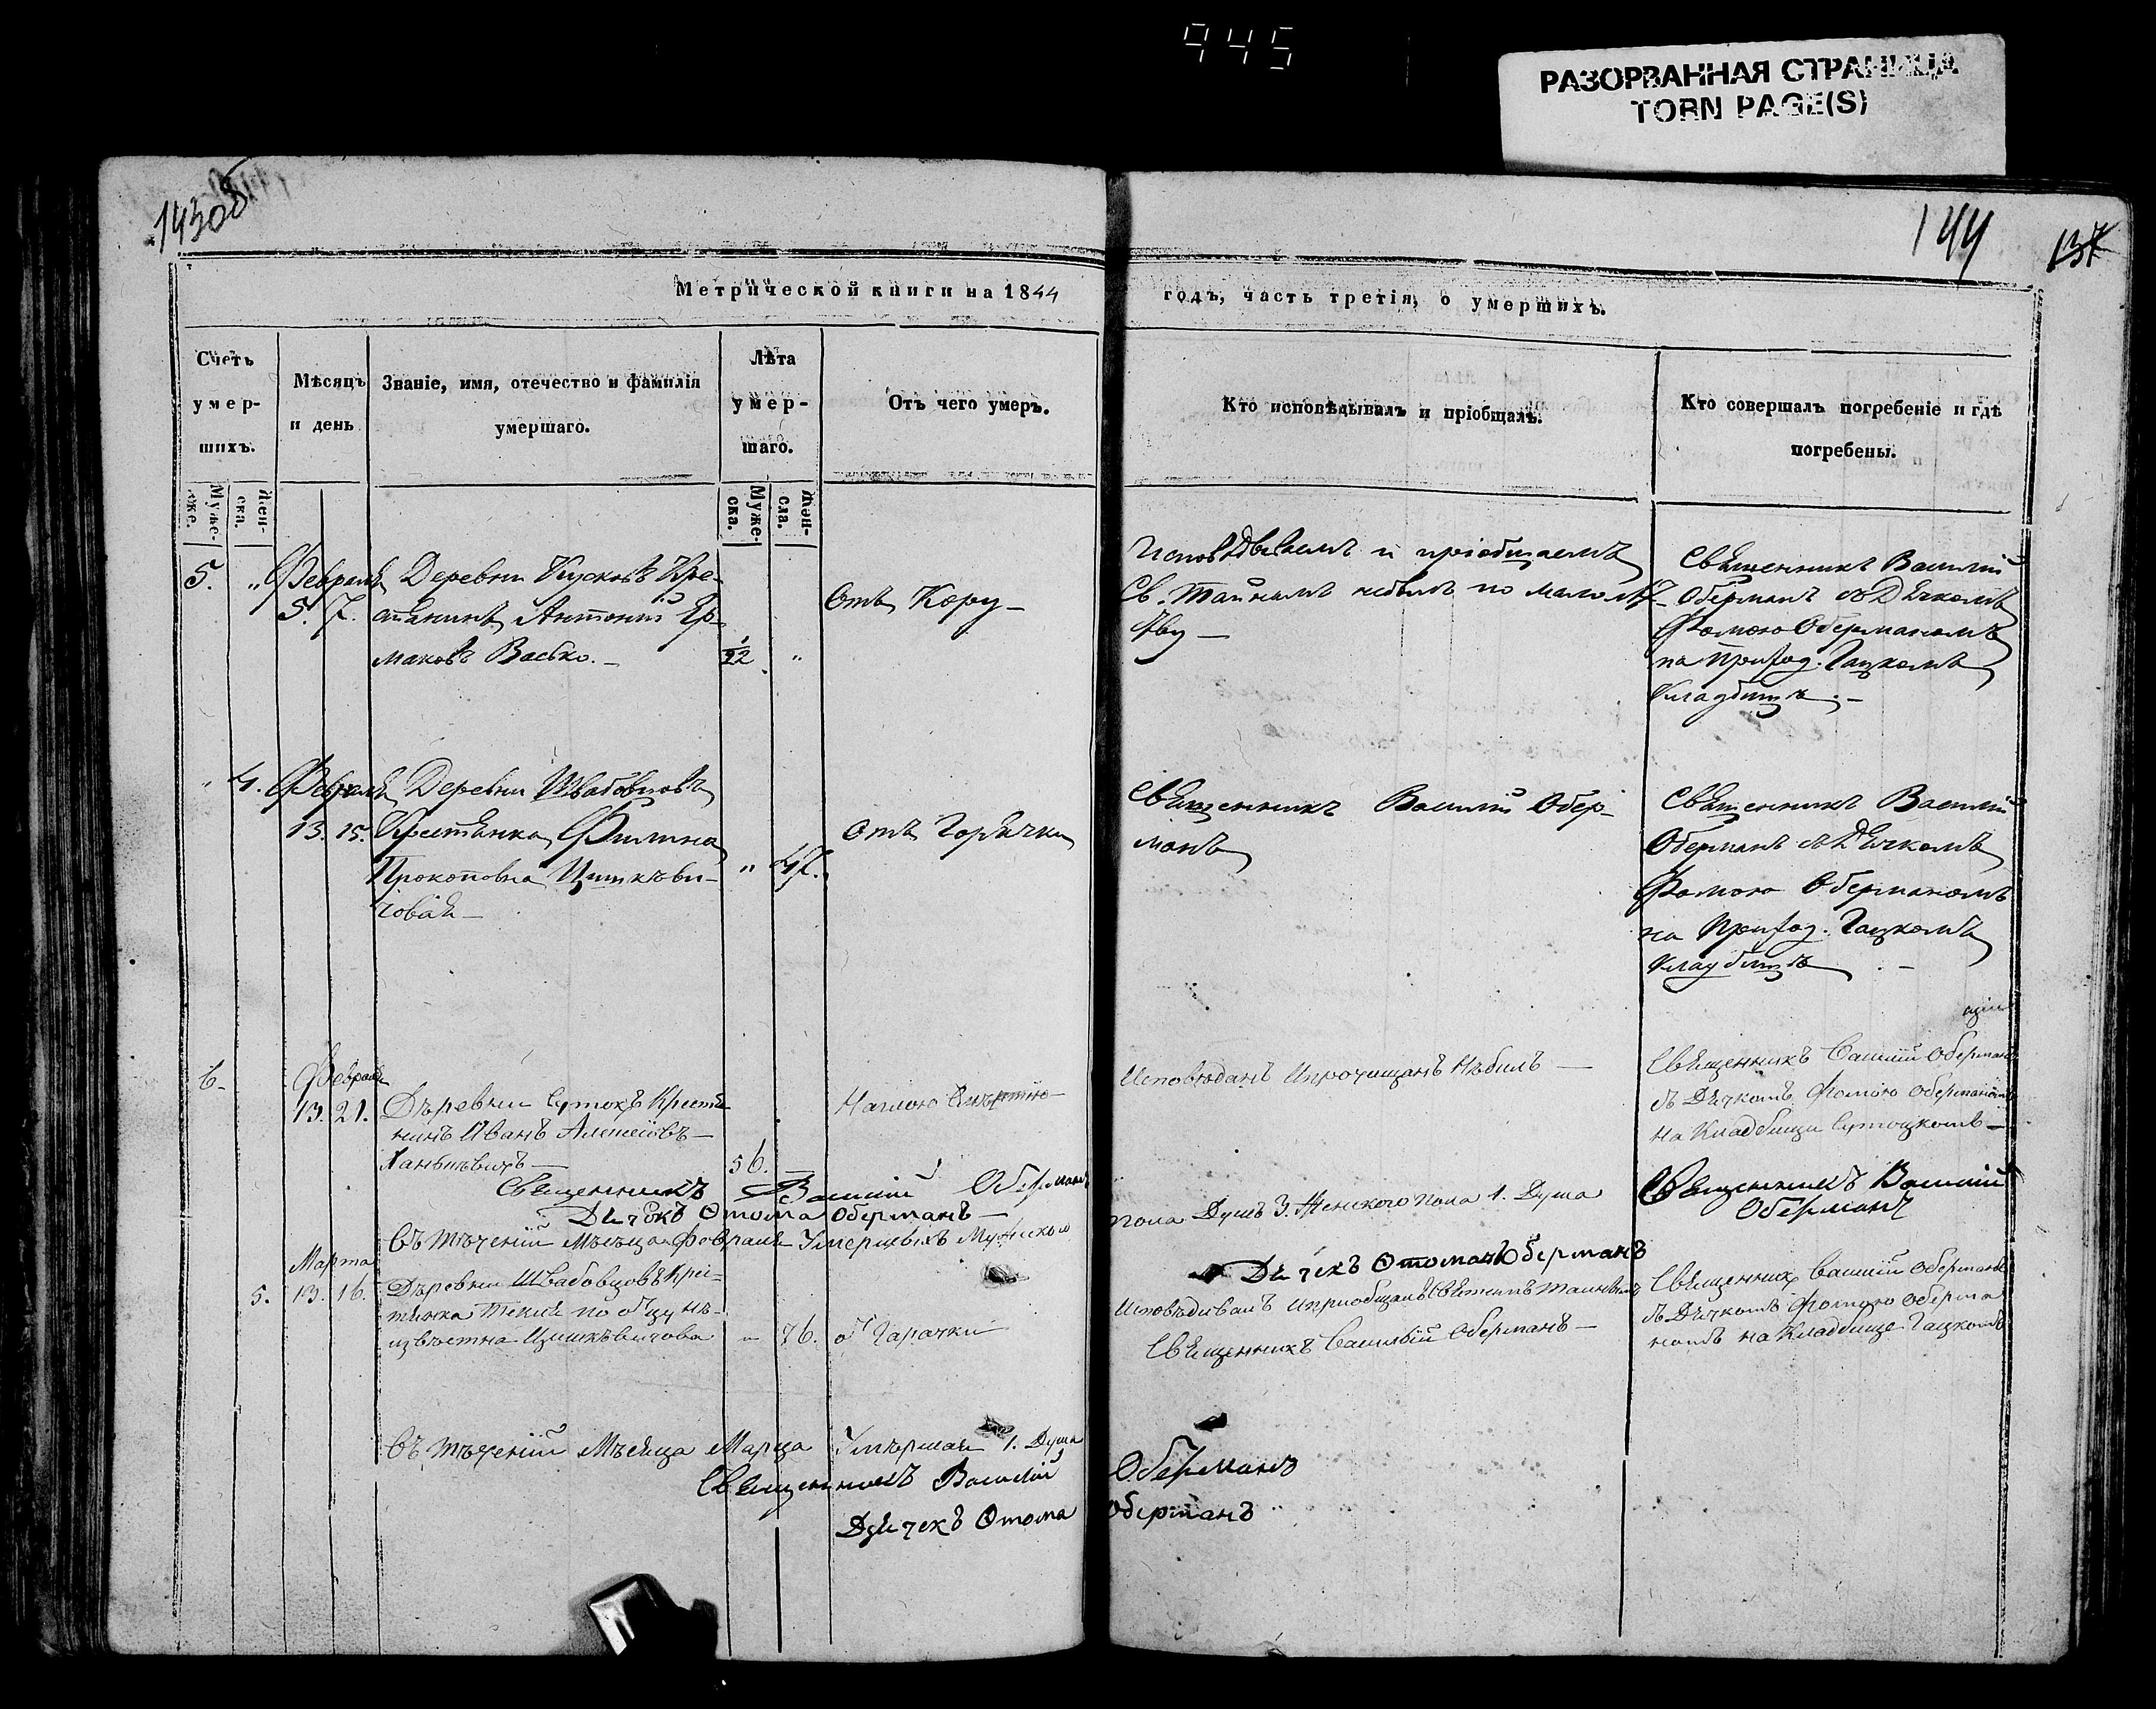 945
РАЗОРВАННАЯ СТРАНИЦА
TORN PAGE(S)
143 об
144
137
Метрической книги на 1844
годъ, часть третія, о умершихъ.
Счетъ умер-шихъ.
Мѣсяцъ и день
Званіе, имя, отечество и фамилія умершаго.
Лѣта умер-шаго.
Отъ чего умеръ.
Кто исповѣдывалъ и пріобщалъ.
Кто совершалъ погребеніе и гдѣ погребены.
Муже-
Жен-ска.
Муже-ска.
Жен-
5. „ Февраля Деревни Кусковъ Кре-
5. 7. стьянинъ Антоній Ер-
маковъ Васько. —
1/22 „
Отъ Кору —
Исповѣдываемъ и пріобщаемъ
Св. Тайнамъ небылъ по малолѣ-
тву —
Священникъ Василій
Оберманъ съ Дьячкомъ
Фомою Оберманомъ
на Приход. Гацкомъ
Кладбищѣ. —
„ 4. Февраля Деревни Швабовцовъ
13. 15. Крестьянка
Прокоповна Цишкеви-
човая —
„ 47.
отъ Горячки
Священникъ Василій Обер-
манъ
Священникъ Василій
Оберманъ съ Дьячкомъ
Фомою Оберманомъ
на Приход. Гацкомъ
Кладбищѣ. —
6 —
Февраля
13. 21. Дѣревни Сутокъ Крестя
нинъ Иванъ
56.
Наглою Смертію
Исповѣданъ небылъ —
Священникъ Василій Оберманъ
съ Дьячкомъ Фомою Оберманомъ
на Кладбищи Сутоцкомъ —
Священникъ Василій Оберманъ
Дьячекъ Отома Оберманъ —
Въ Тѣченіи Мѣсеца Февраля Умершыхъ Мужеского
пола Душъ 3. Женского пола 1. Душа
Священникъ Василій
Оберманъ
Дьячекъ Отома Оберманъ
Марта
5. 13. 16. Дѣревни Швабовцовъ Крес-
тянка Текля по отцу нѣ-
извѣстна Цишкѣвичова
„ 76. отъ Гарачки
Исповѣдивалъ
Священникъ Василій Оберманъ —
Священникъ Василій Оберманъ
съ Дьячкомъ Фомою Оберма
номъ на Кладбище Гацкомъ
Въ тѣченіи Мѣсяца Марца Умѣршая 1. Душа
Священникъ Василій Оберманъ
Дьячекъ Отома Оберманъ